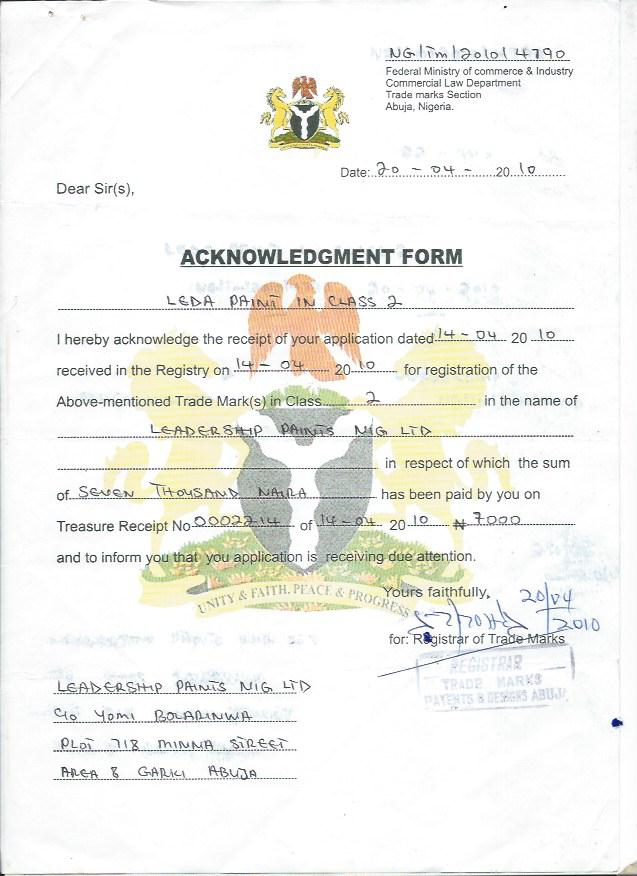 NG/Tm/2010/4790
Federal Ministry of commerce & Industry
Commercial Law Department
Trade marks Section
Abuja, Nigeria.
Date: 20 - 04 - 20 10
Dear Sir(s),
ACKNOWLEDGMENT FORM
LEDA PAINT IN CLASS 2
I hereby acknowledge the receipt of your application dated 14-04 20 10
received in the Registry on 14-04 20 10 for registration of the
Above-mentioned Trade Mark(s) in Class 2 in the name of
LEADERSHIP PAINTS NIG LTD
in respect of which the sum
of SEVEN THOUSAND NAIRA has been paid by you on
Treasure Receipt No 0002214 of 14-04 20 10 ₦ 7000
and to inform you that you application is receiving due attention.
UNITY & FAITH, PEACE & PROGRESS
Yours faithfully, 20/04
/2010
for: Registrar of Trade Marks
REGISTRAR
TRADE MARKS
PATENTS & DESIGNS ABUJA
LEADERSHIP PAINTS NIG LTD
C/o YOMI BOLARINWA
PLOT 718 MINNA STREET
AREA 8 GARKI ABUJA